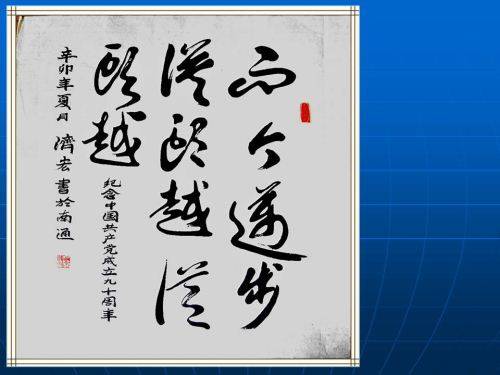 而今邁步
從頭越從
頭越
纪念中国共产党成立九十周年
辛卯年夏月 濟宏書於南通